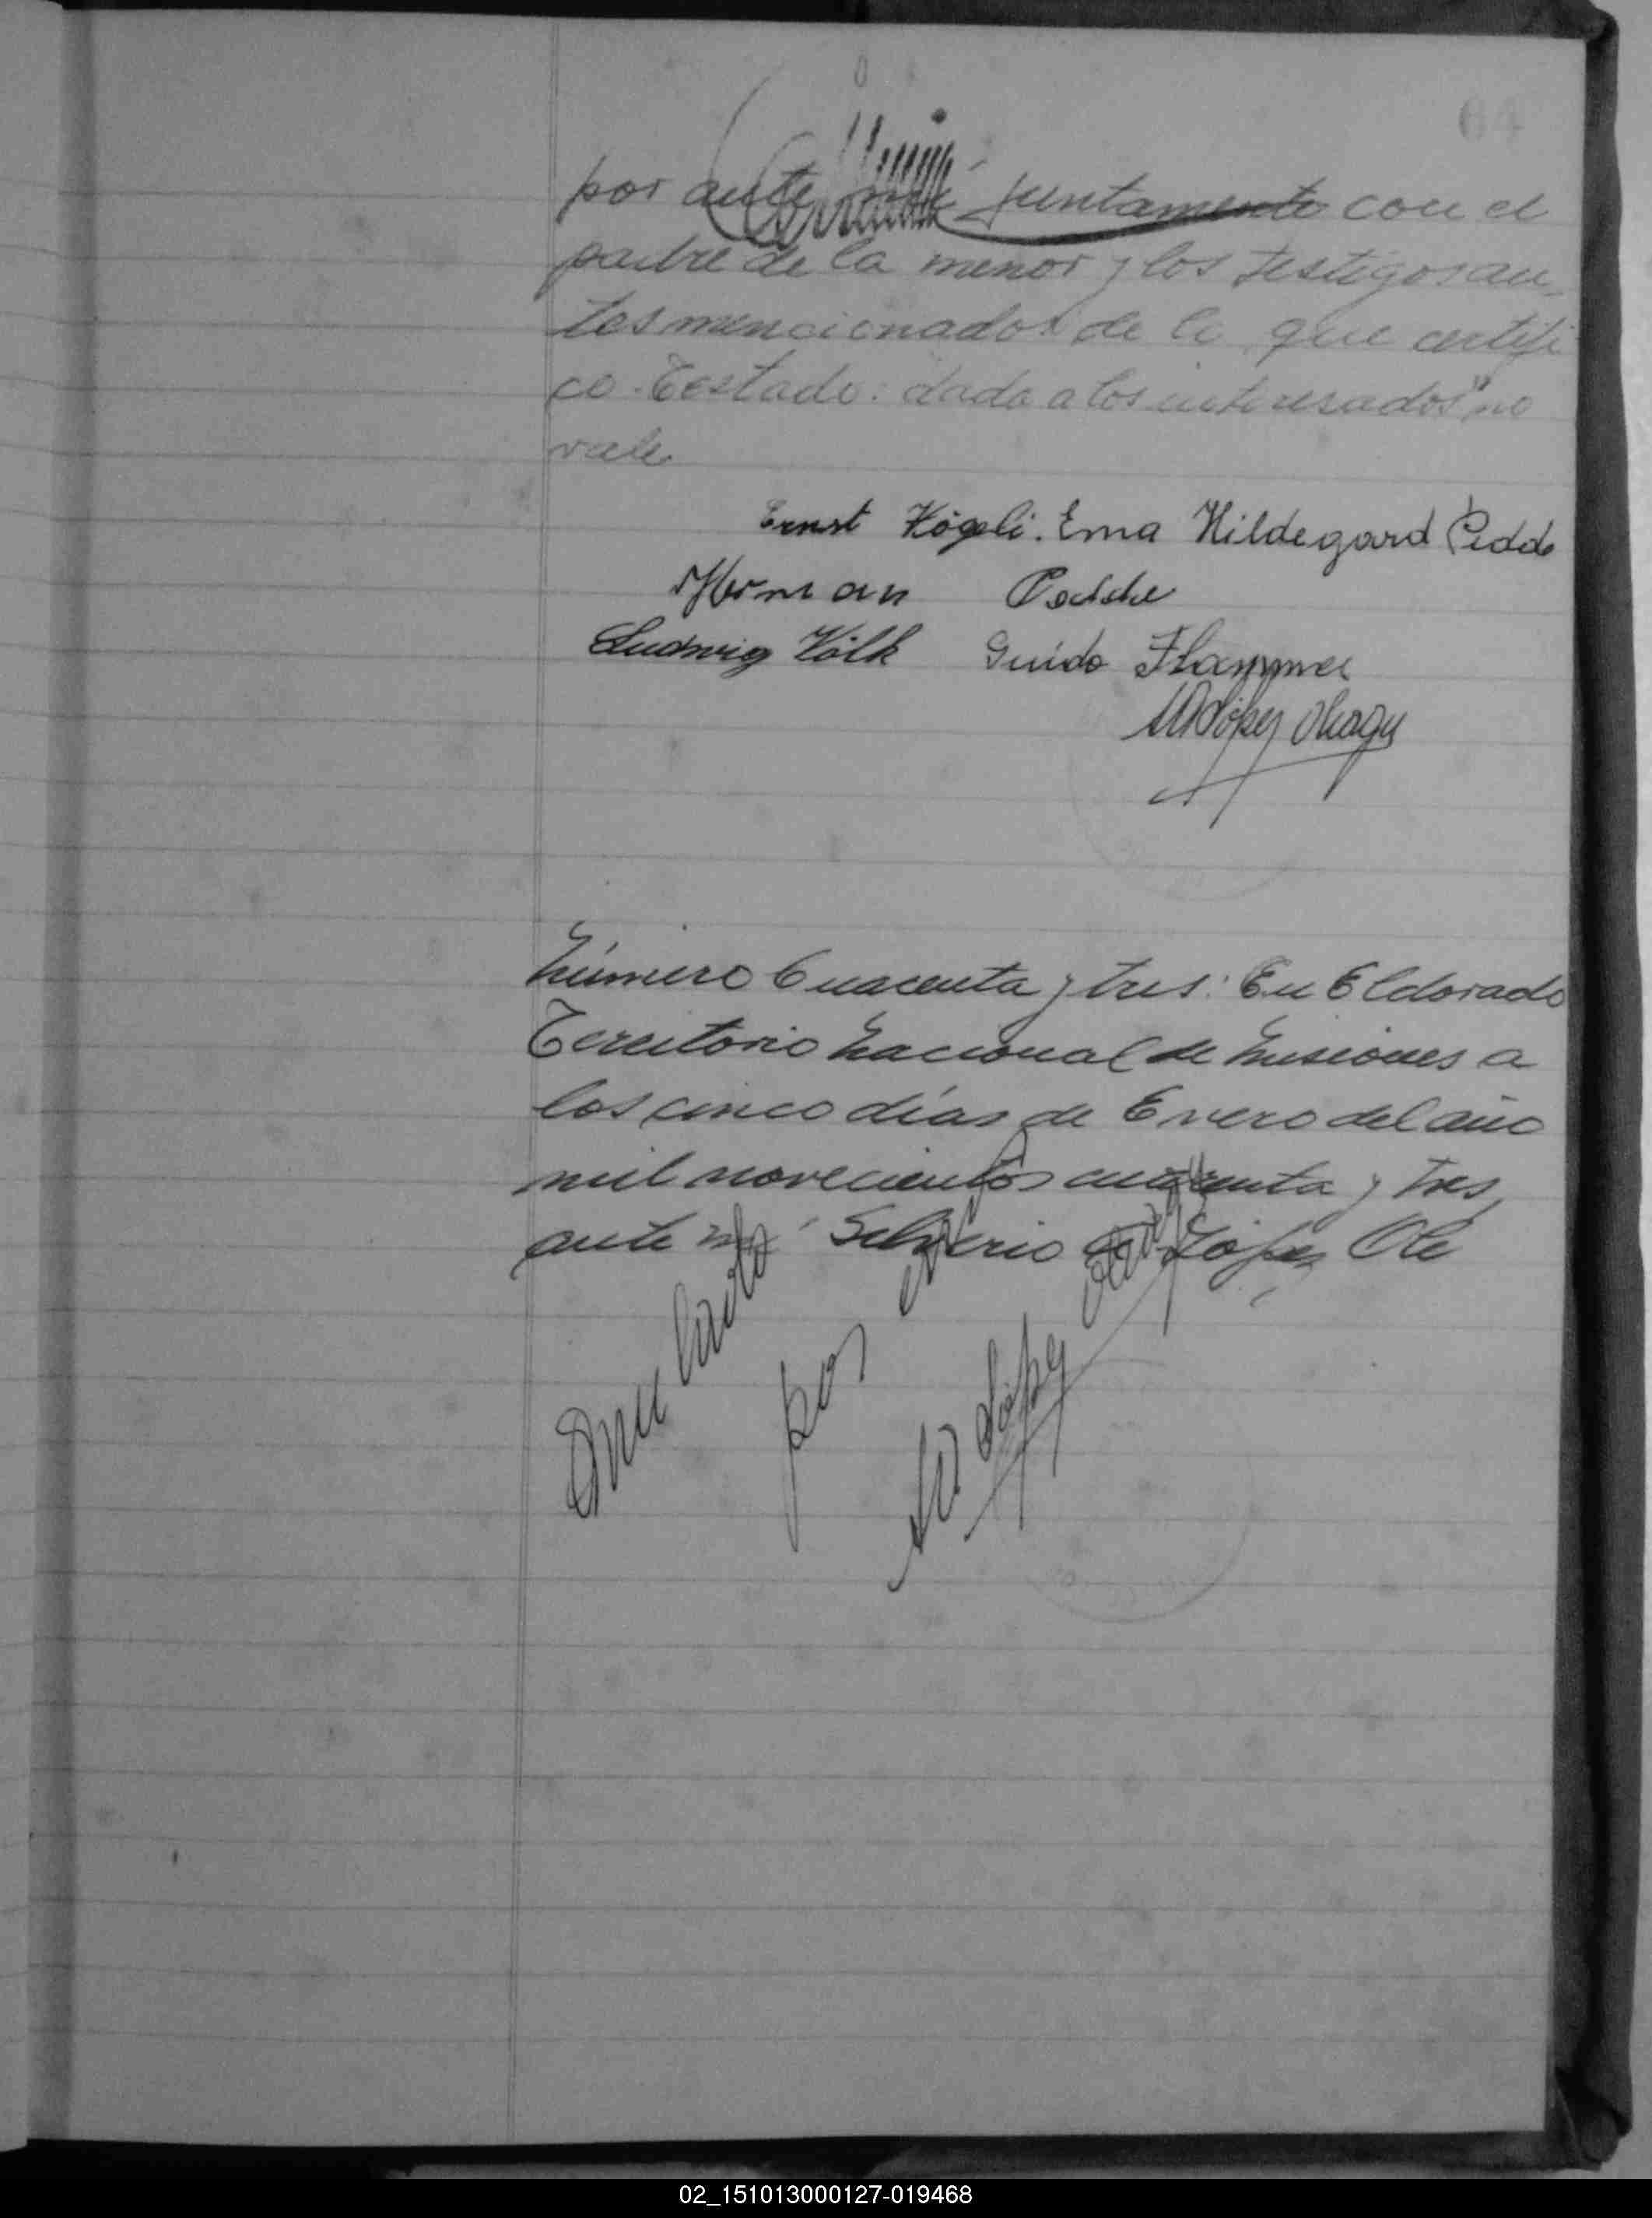 64
por ante mí juntamente con el
padre de la menor y los testigos an-
tes mencionados de lo que certifi
co. Testado: dada a los interesados" no
vale
Ernst Kögeli. Erna Hildegard Pedde
Herman Pedde
Ludwig Völk Guido Flammer
López Olaza
Número Cuarenta y tres: En Eldorado
Territorio Nacional de Misiones a
los cinco días de Enero del año
mil novecientos cuarenta y tres,
ante mí Silverio López Ola
Anulada por
López
02_151013000127-019468